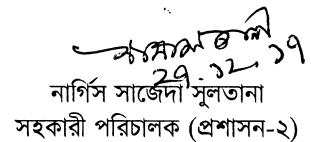 ২৭.১২.১৭
নার্গিস সাজেদা সুলতানা
সহকারী পরিচালক (প্রশাসন-২)